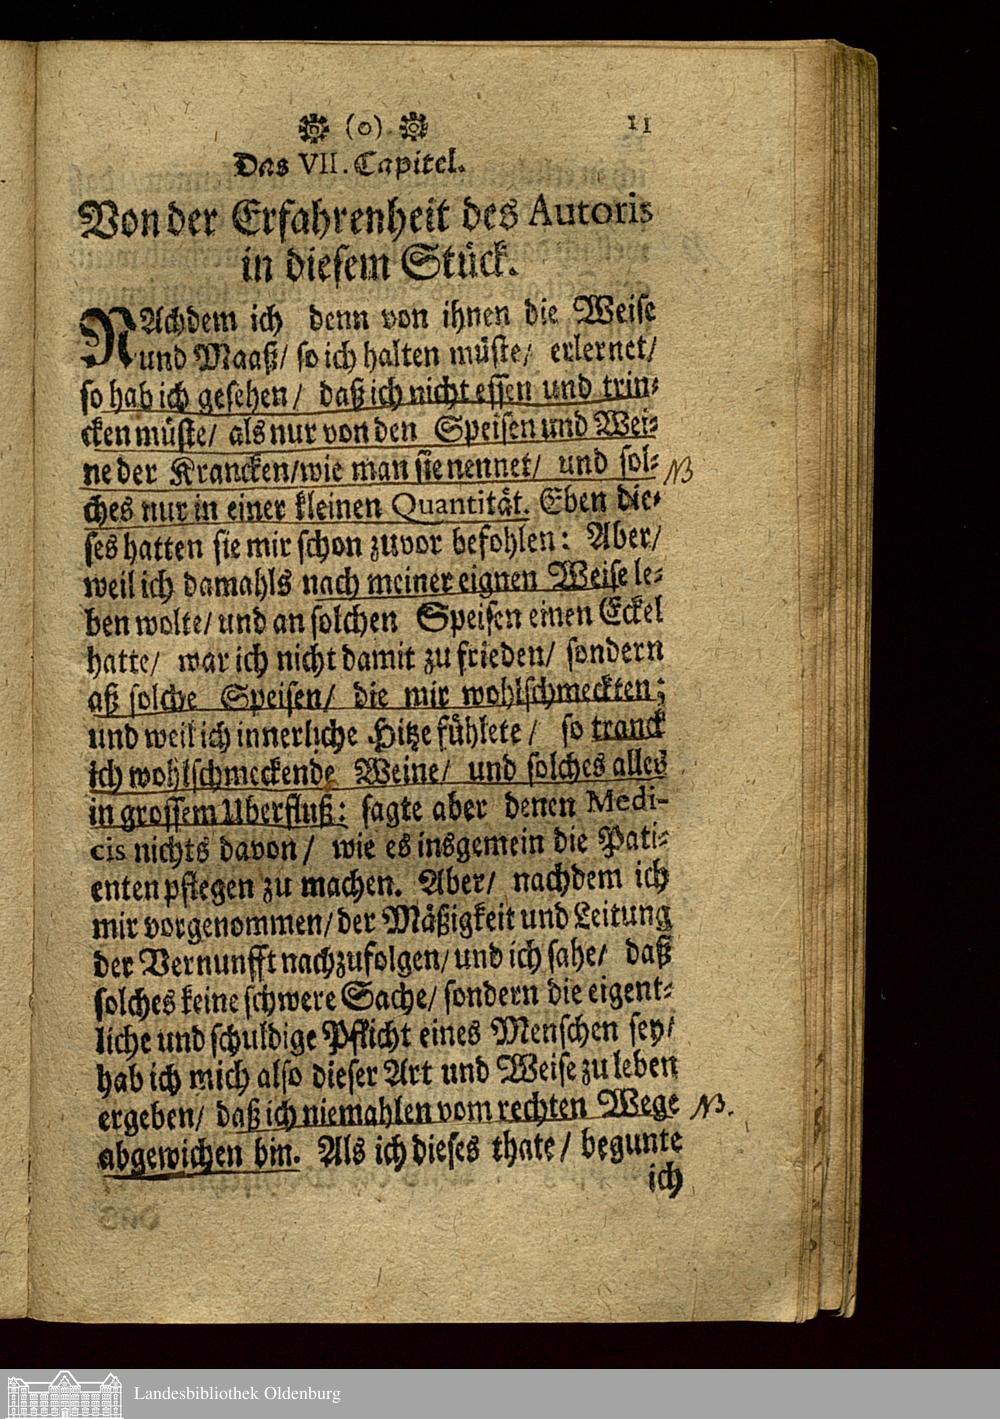 (o) 11
Das VII. Capitel.
Von der Erfahrenheit des Autoris
in diesem Stück.
NAchdem ich denn von ihnen die Weise
und Maaß/ so ich halten müste/ erlernet/
so hab ich gesehen/ daß ich nicht essen und trin-
cken müste/ als nur von den Speisen und Wei-
ne der Krancken/wie man sie nennet/ und sol- NB
ches nur in einer kleinen Quantität. Eben die-
ses hatten sie mir schon zuvor befohlen: Aber/
weil ich damahls nach meiner eignen Weise le-
ben wolte/ und an solchen Speisen einen Eckel
hatte/ war ich nicht damit zu frieden/ sondern
aß solche Speisen/ die mir wohlschmeckten;
und weil ich innerliche Hitze fühlete/ so tranck
ich wohlschmeckende Weine/ und solches alles
in grossem Uberfluß: sagte aber denen Medi-
cis nichts davon/ wie es insgemein die Pati-
enten pflegen zu machen. Aber/ nachdem ich
mir vorgenommen/ der Mäßigkeit und Leitung
der Vernunfft nachzufolgen/ und ich sahe/ daß
solches keine schwere Sache/ sondern die eigent-
liche und schuldige Pflicht eines Menschen sey/
hab ich mich also dieser Art und Weise zu leben
ergeben/ daß ich niemahlen vom rechten Wege NB.
abgewichen bin. Als ich dieses thate/ begunte
ich
Landesbibliothek Oldenburg